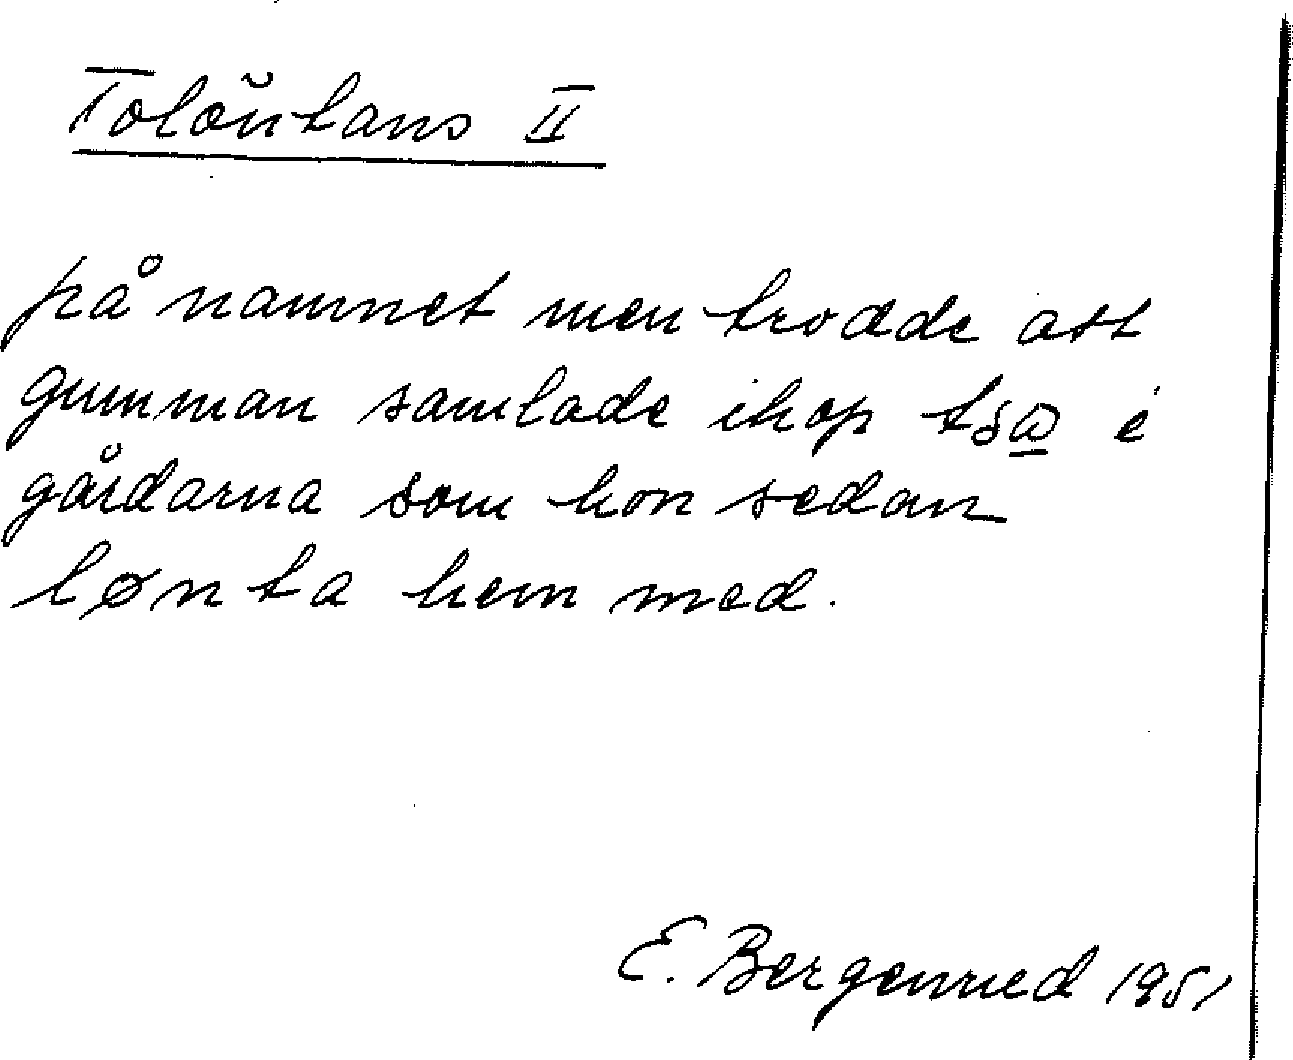 Tolŏŭtans II
på namnet men trodde att
gumman samlade ihop i
gårdarna som hon sedan
lønta hem med.
E. Bergenried 1951